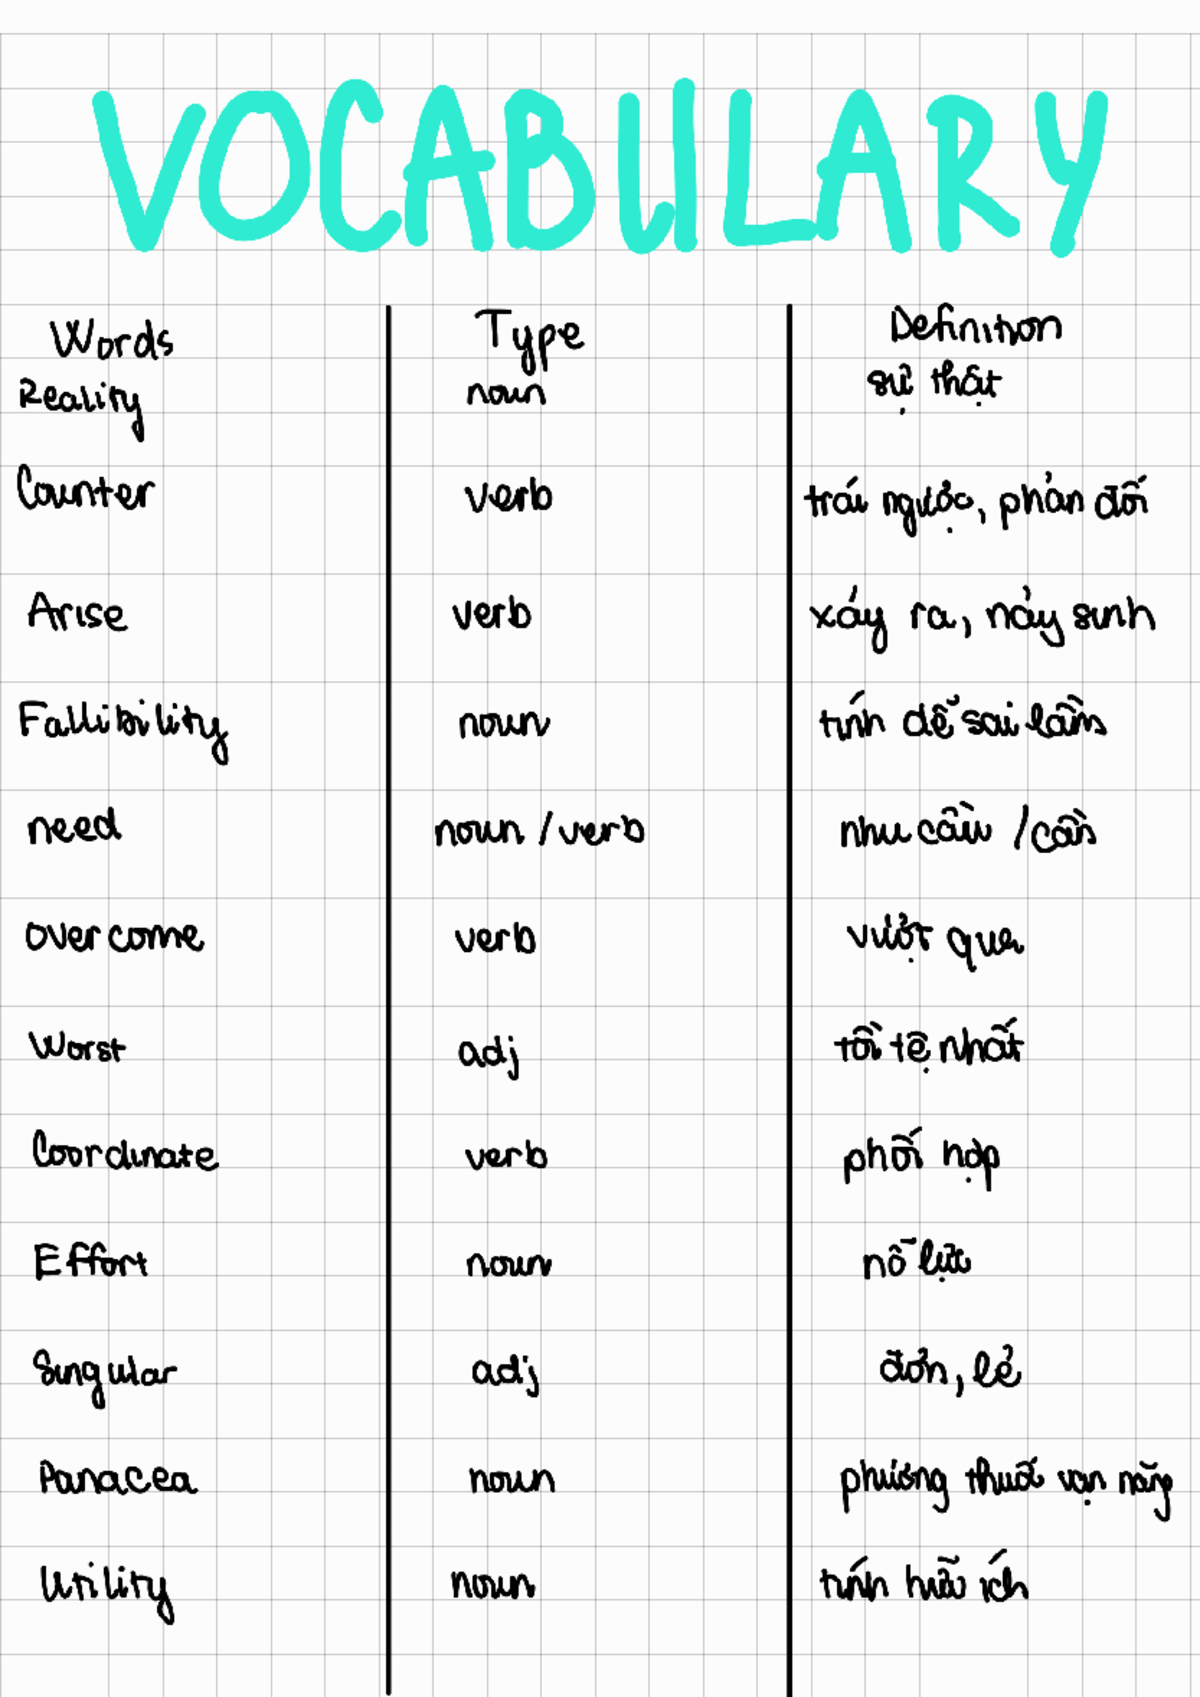 VOCABULARY
Words Type Definition
Reality noun sự thật
Counter verb trái ngược, phản đối
Arise verb xảy ra, nảy sinh
Fallibility noun tính dễ sai lầm
need noun / verb nhu cầu / cần
overcome verb vượt qua
Worst adj tồi tệ nhất
Coordinate verb phối hợp
Effort noun nỗ lực
Singular adj đơn, lẻ
Panacea noun phương thuốc vạn năng
Utility noun tính hữu ích